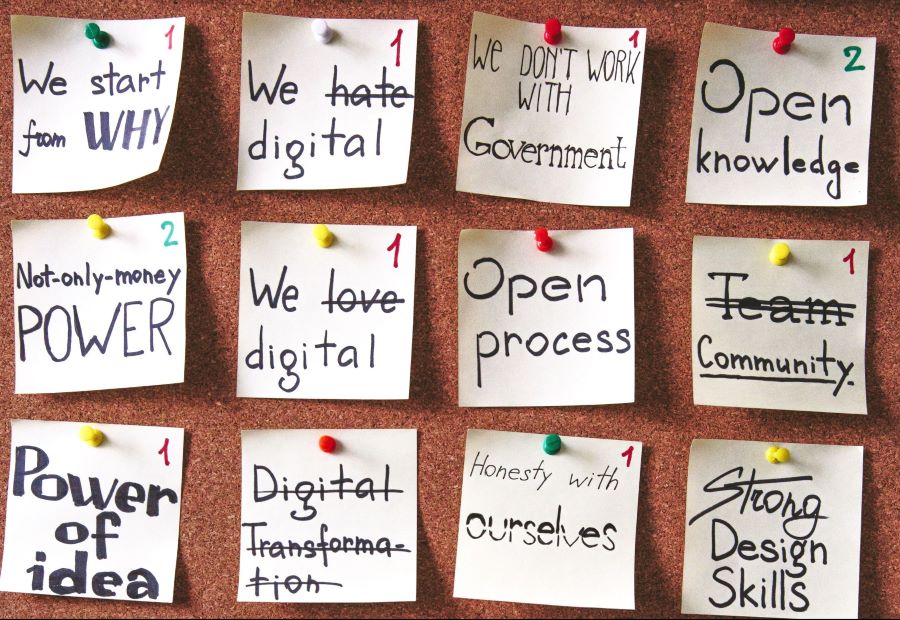 1
We start
from WHY
1
We hate
digital
1
We DON'T WORK
WITH
Government
2
Open
knowledge
2
Not-only-money
POWER
1
We love
digital
Open
process
1
Team
Community.
1
Power
of
idea
Digital
Transforma-
tion
1
Honesty with
ourselves
Strong
Design
Skills